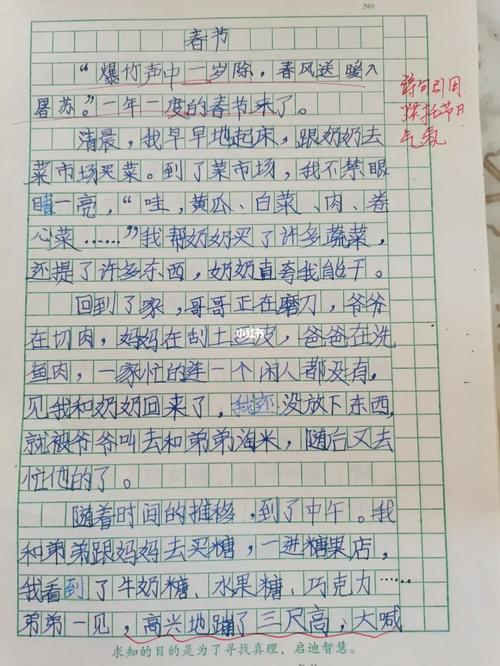 NO
春节
“爆竹声中一岁除，春风送暖入
屠苏。”一年一度的春节来了。
诗句引用
烘托节日
气氛
清晨，我早早地起床，跟奶奶去
菜市场买菜。到了菜市场，我不禁眼
睛一亮，“哇，黄瓜、白菜、肉、卷
心菜……”我帮奶奶买了许多蔬菜，
还提了许多东西，奶奶直夸我能干。
回到了家，哥哥正在磨刀，爷爷
在切肉，妈妈在刮土豆皮，爸爸在洗
鱼肉，一家忙的连一个闲人都没有，
见我和奶奶回来了，我还没放下东西，
就被爷爷叫去和弟弟淘米，随后又去
忙他的了。
随着时间的推移，到了中午。我
和弟弟跟妈妈去买糖，一进糖果店，
我看到了牛奶糖、水果糖、巧克力……
弟弟一见，高兴地蹦了三尺高，大喊
求知的目的是为了寻找真理，启迪智慧。
小红书